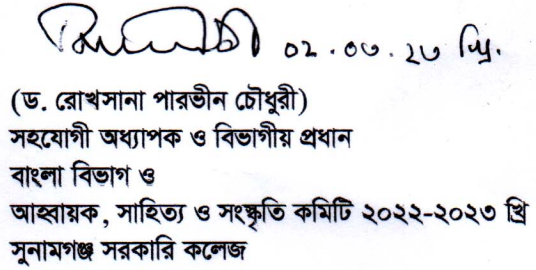 ০২.০৩.২৩ খ্রি.
(ড. রোখসানা পারভীন চৌধুরী)
সহযোগী অধ্যাপক ও বিভাগীয় প্রধান
বাংলা বিভাগ ও
আহ্বায়ক, সাহিত্য ও সংস্কৃতি কমিটি ২০২২-২০২৩ খ্রি
সুনামগঞ্জ সরকারি কলেজ